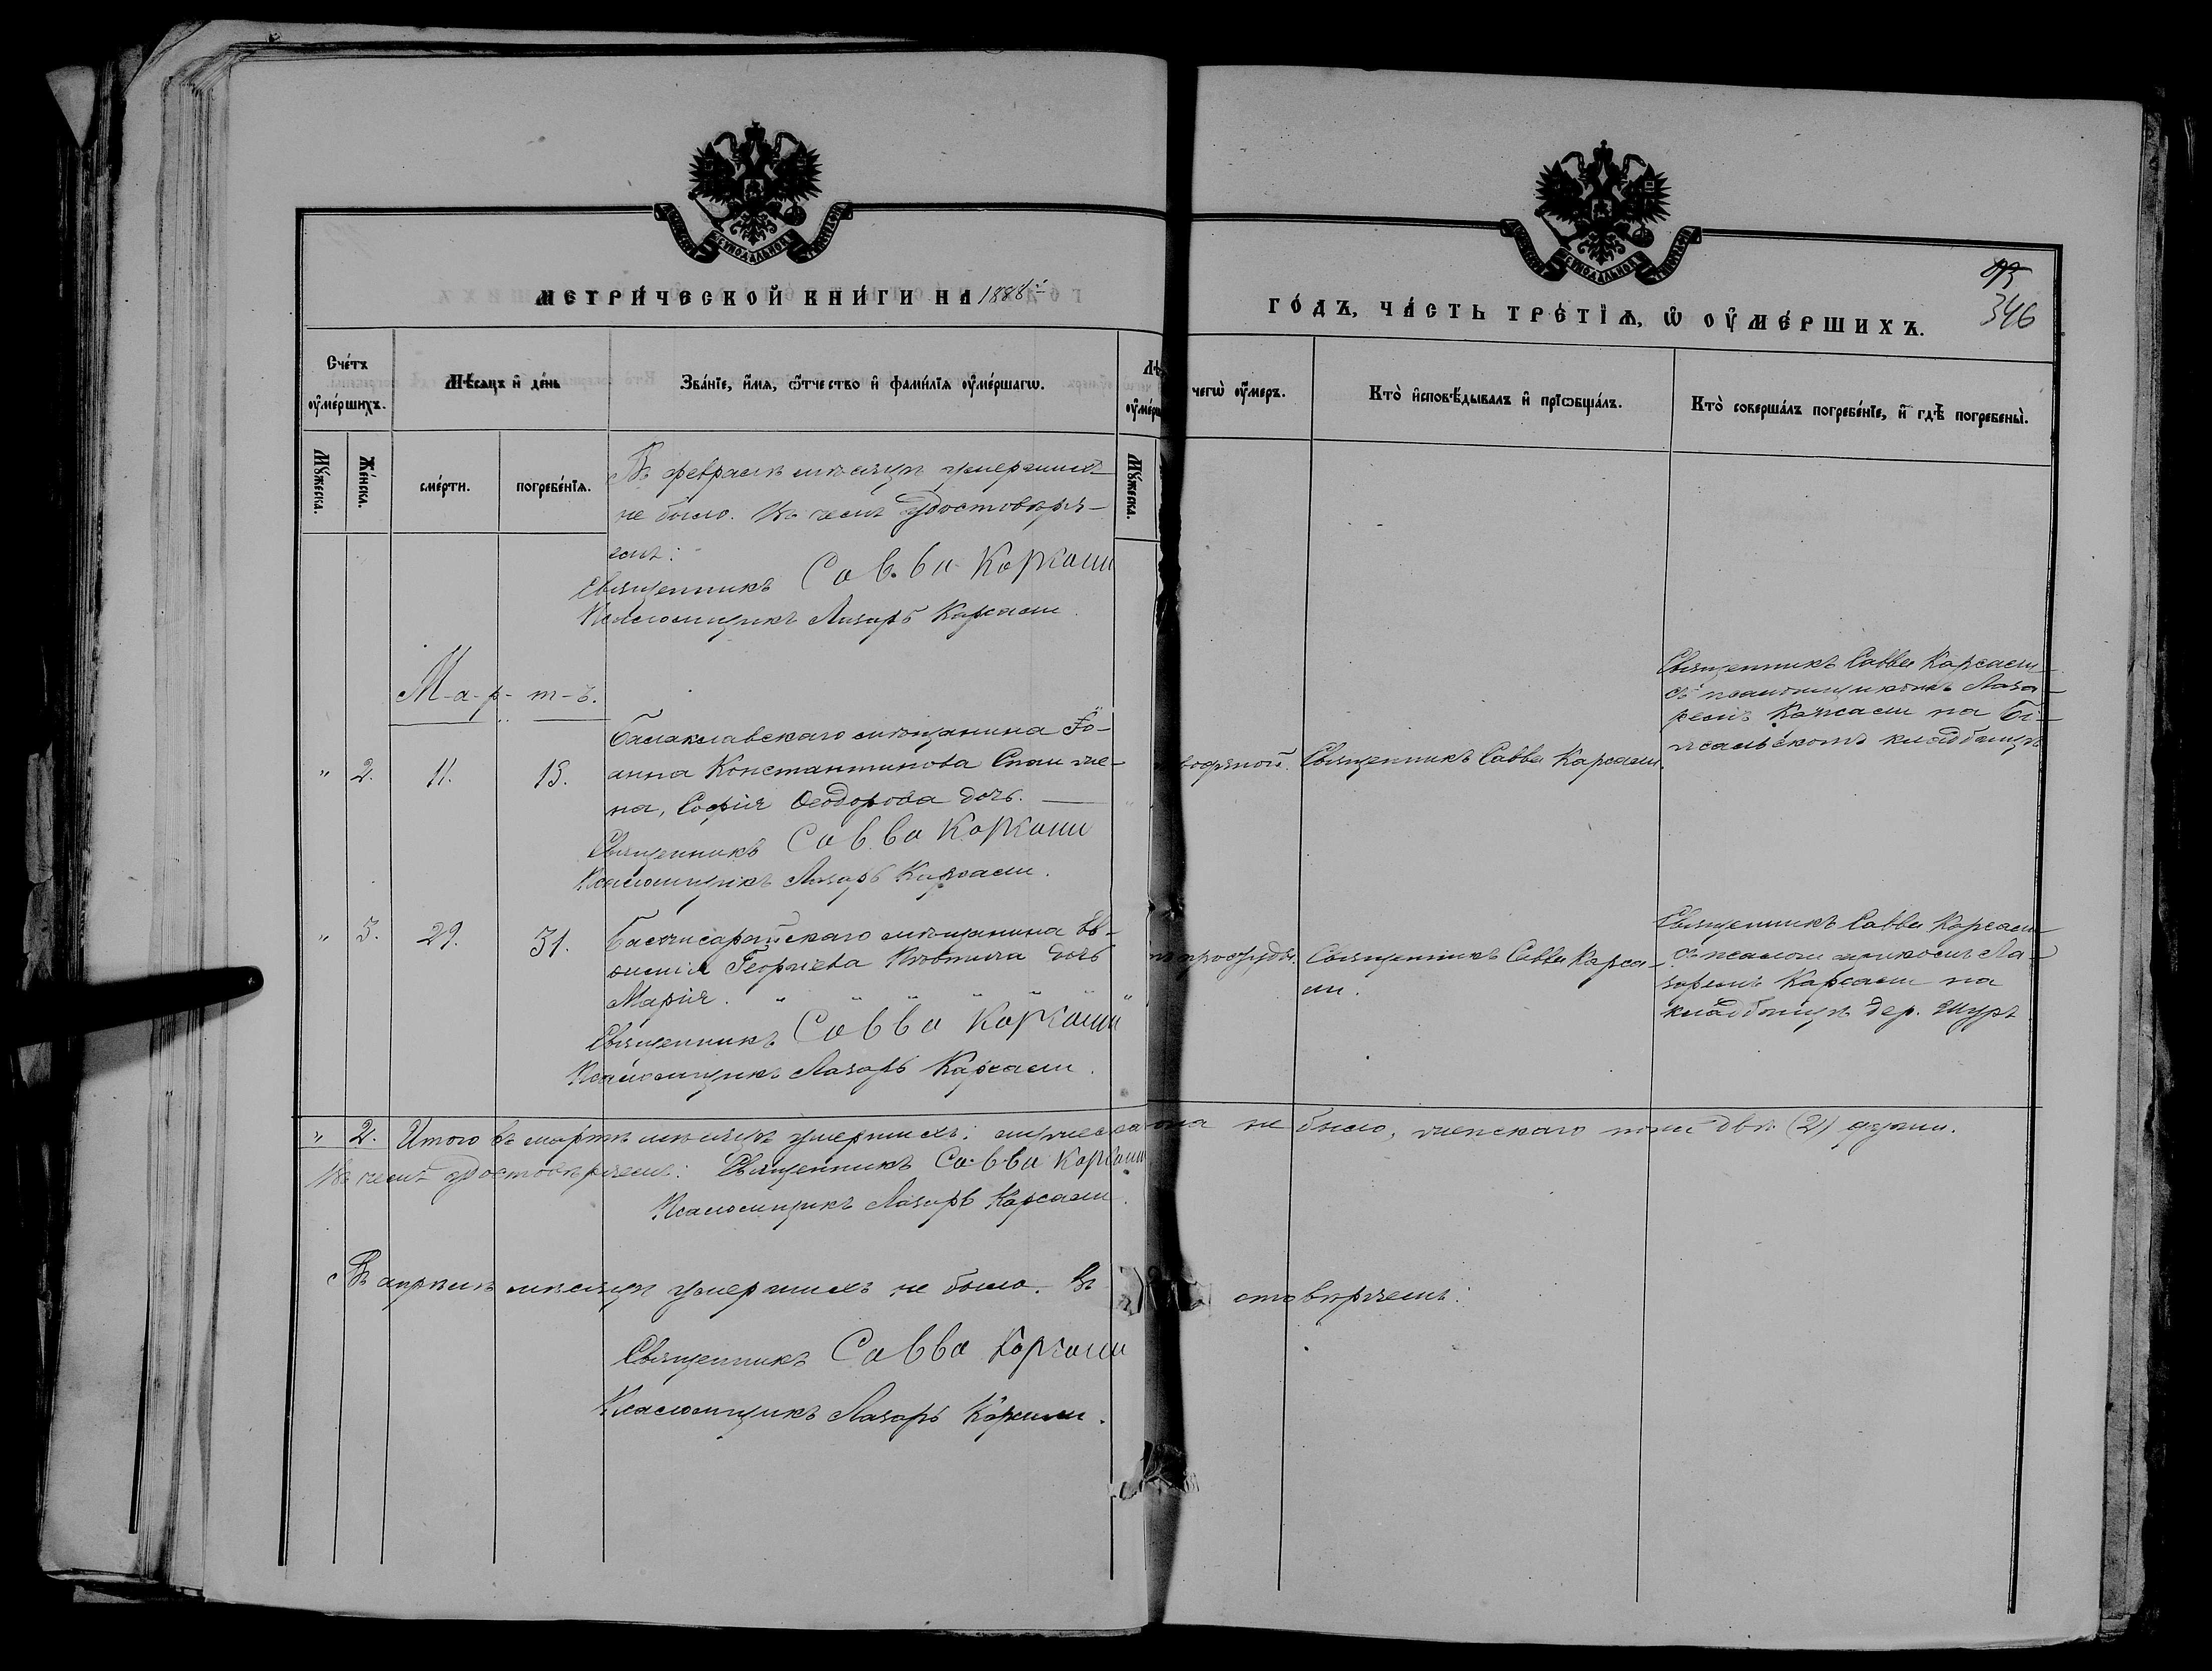 МЕТРИ́ЧЕСКОЙ КНИ́ГИ НА 1888й
ГО́ДЪ, ЧА́СТЬ ТРЕ́ТІѦ, Ѡ҆ ОУ҆МЕ́РШИХЪ.
93
346
Сче́тъ оу҆ме́ршихъ.
Мѣ́сѧцъ и҆ де́нь
Зва́нїе, и҆́мѧ, ѻ҆́тчество и҆ фами́лїѧ оу҆ме́ршагѡ.
чегѡ̀ оу҆́меръ.
Кто̀ и҆сповѣ́дывалъ и҆ прїѡбща́лъ.
Кто̀ соверша́лъ погребе́нїе, и҆ гдѣ̀ погребены̀.
Мꙋ́жеска.
Же́нска.
сме́рти.
погребе́нїѧ.
Мꙋ́жеска.
Въ февралѣ мѣсяцѣ умершихъ
не было. Въ чемъ удостовѣря-
емъ:
Священникъ Савва Карсаш
Псаломщикъ Лазарь Карсаши.
М-а-р-т-ъ.
" 2. 11. 13.
Балаклавскаго мѣщанина Іо-
анна Константинова жe-
на, Софія Ѳеодорова дочь.
Священникъ Савва Карсаши
Псаломщикъ Лазарь Карсаши.
Священникъ Савва Карсаши.
Священникъ Савва Карсаши
съ псаломщикомъ Лаза-
ремъ Карсаши на Бі-
кладбищѣ
" 3. 29. 31.
Бахчисарайскаго мѣщанина Ев-
Георгіева дочь
Марія. " " " " " " "
Священникъ Савва Карсаши
Псаломщикъ Лазарь Карсаши.
простуды.
Священникъ Савва Карса-
ши.
Священникъ Савва Карсаши
съ псаломщикомъ Ла-
заремъ Карсаши на
кладбищѣ дер. Шурѣ
" 2. Итого въ мартѣ мѣсяцѣ умершихъ: мужеска пола не было, женскаго пола двѣ (2) души.
Въ чемъ удостовѣряемъ: Священникъ Савва Карсаши
Псаломщикъ Лазарь Карсаши.
Въ апрѣлѣ мѣсяцѣ умершихъ не было. Въ стовѣряемъ:
Священникъ Савва Карсаши
Псаломщикъ Лазарь Карсаши.